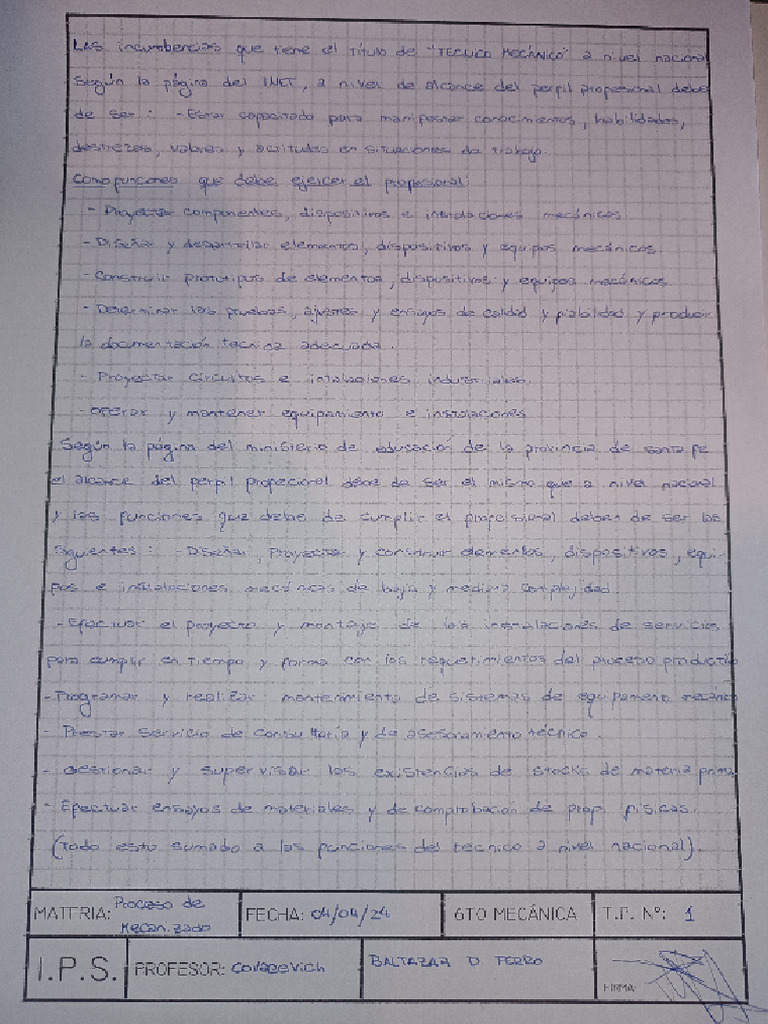 Las incumbencias que tiene el Título de "TECNICO MECÁNICO" a nivel nacional
según la página del INET, a nivel de alcance del perfil profesional debe
de ser: - Estar capacitado para manifestar conocimientos, habilidades,
destrezas, valores y actitudes en situaciones de trabajo.
Como funciones que debe ejercer el profesional:
- Proyectar componentes, dispositivos e instalaciones mecánicas.
- Diseñar y desarrollar elementos, dispositivos y equipos mecánicos.
- Construir prototipos de elementos, dispositivos y equipos mecánicos
- Determinar las pruebas, ajustes y ensayos de calidad y fiabilidad y producir
la documentación tecnica adecuada.
- Proyectar circuitos e intalaciones industriales.
- Operar y mantener equipamiento e instalaciones
Según la página del ministerio de educación de la provincia de santa fe
el alcance del perfil profecional debe de ser el mismo que a nivel nacional
y las funciones que debe de cumplir el profesional deben de ser las
siguientes: - Diseñar, Proyectar y construir elementos, dispositivos, equi-
pos e instalaciones mecánicas de baja y mediana complejidad.
- Efectuar el proyecto y montaje de las instalaciones de servicios
para cumplir en tiempo y forma con los requerimientos del proceso productivo
- Programar y realizar mantenimiento de sistemas de equipamento mecánico
- Prestar servicio de consultoría y de asesoramento técnico.
- Gestionar y supervisar las existencias de stocks de materia prima
- Efectuar ensayos de materiales y de comprobación de prop. físicas.
(Todo esto sumado a las funciones del tecnico a nivel nacional).
MATERIA: Proceso de Mecanizado FECHA: 04/04/24 6TO MECÁNICA T.P. Nº: 1
I.P.S. PROFESOR: Covacevich BALTAZAR D FERRO FIRMA: